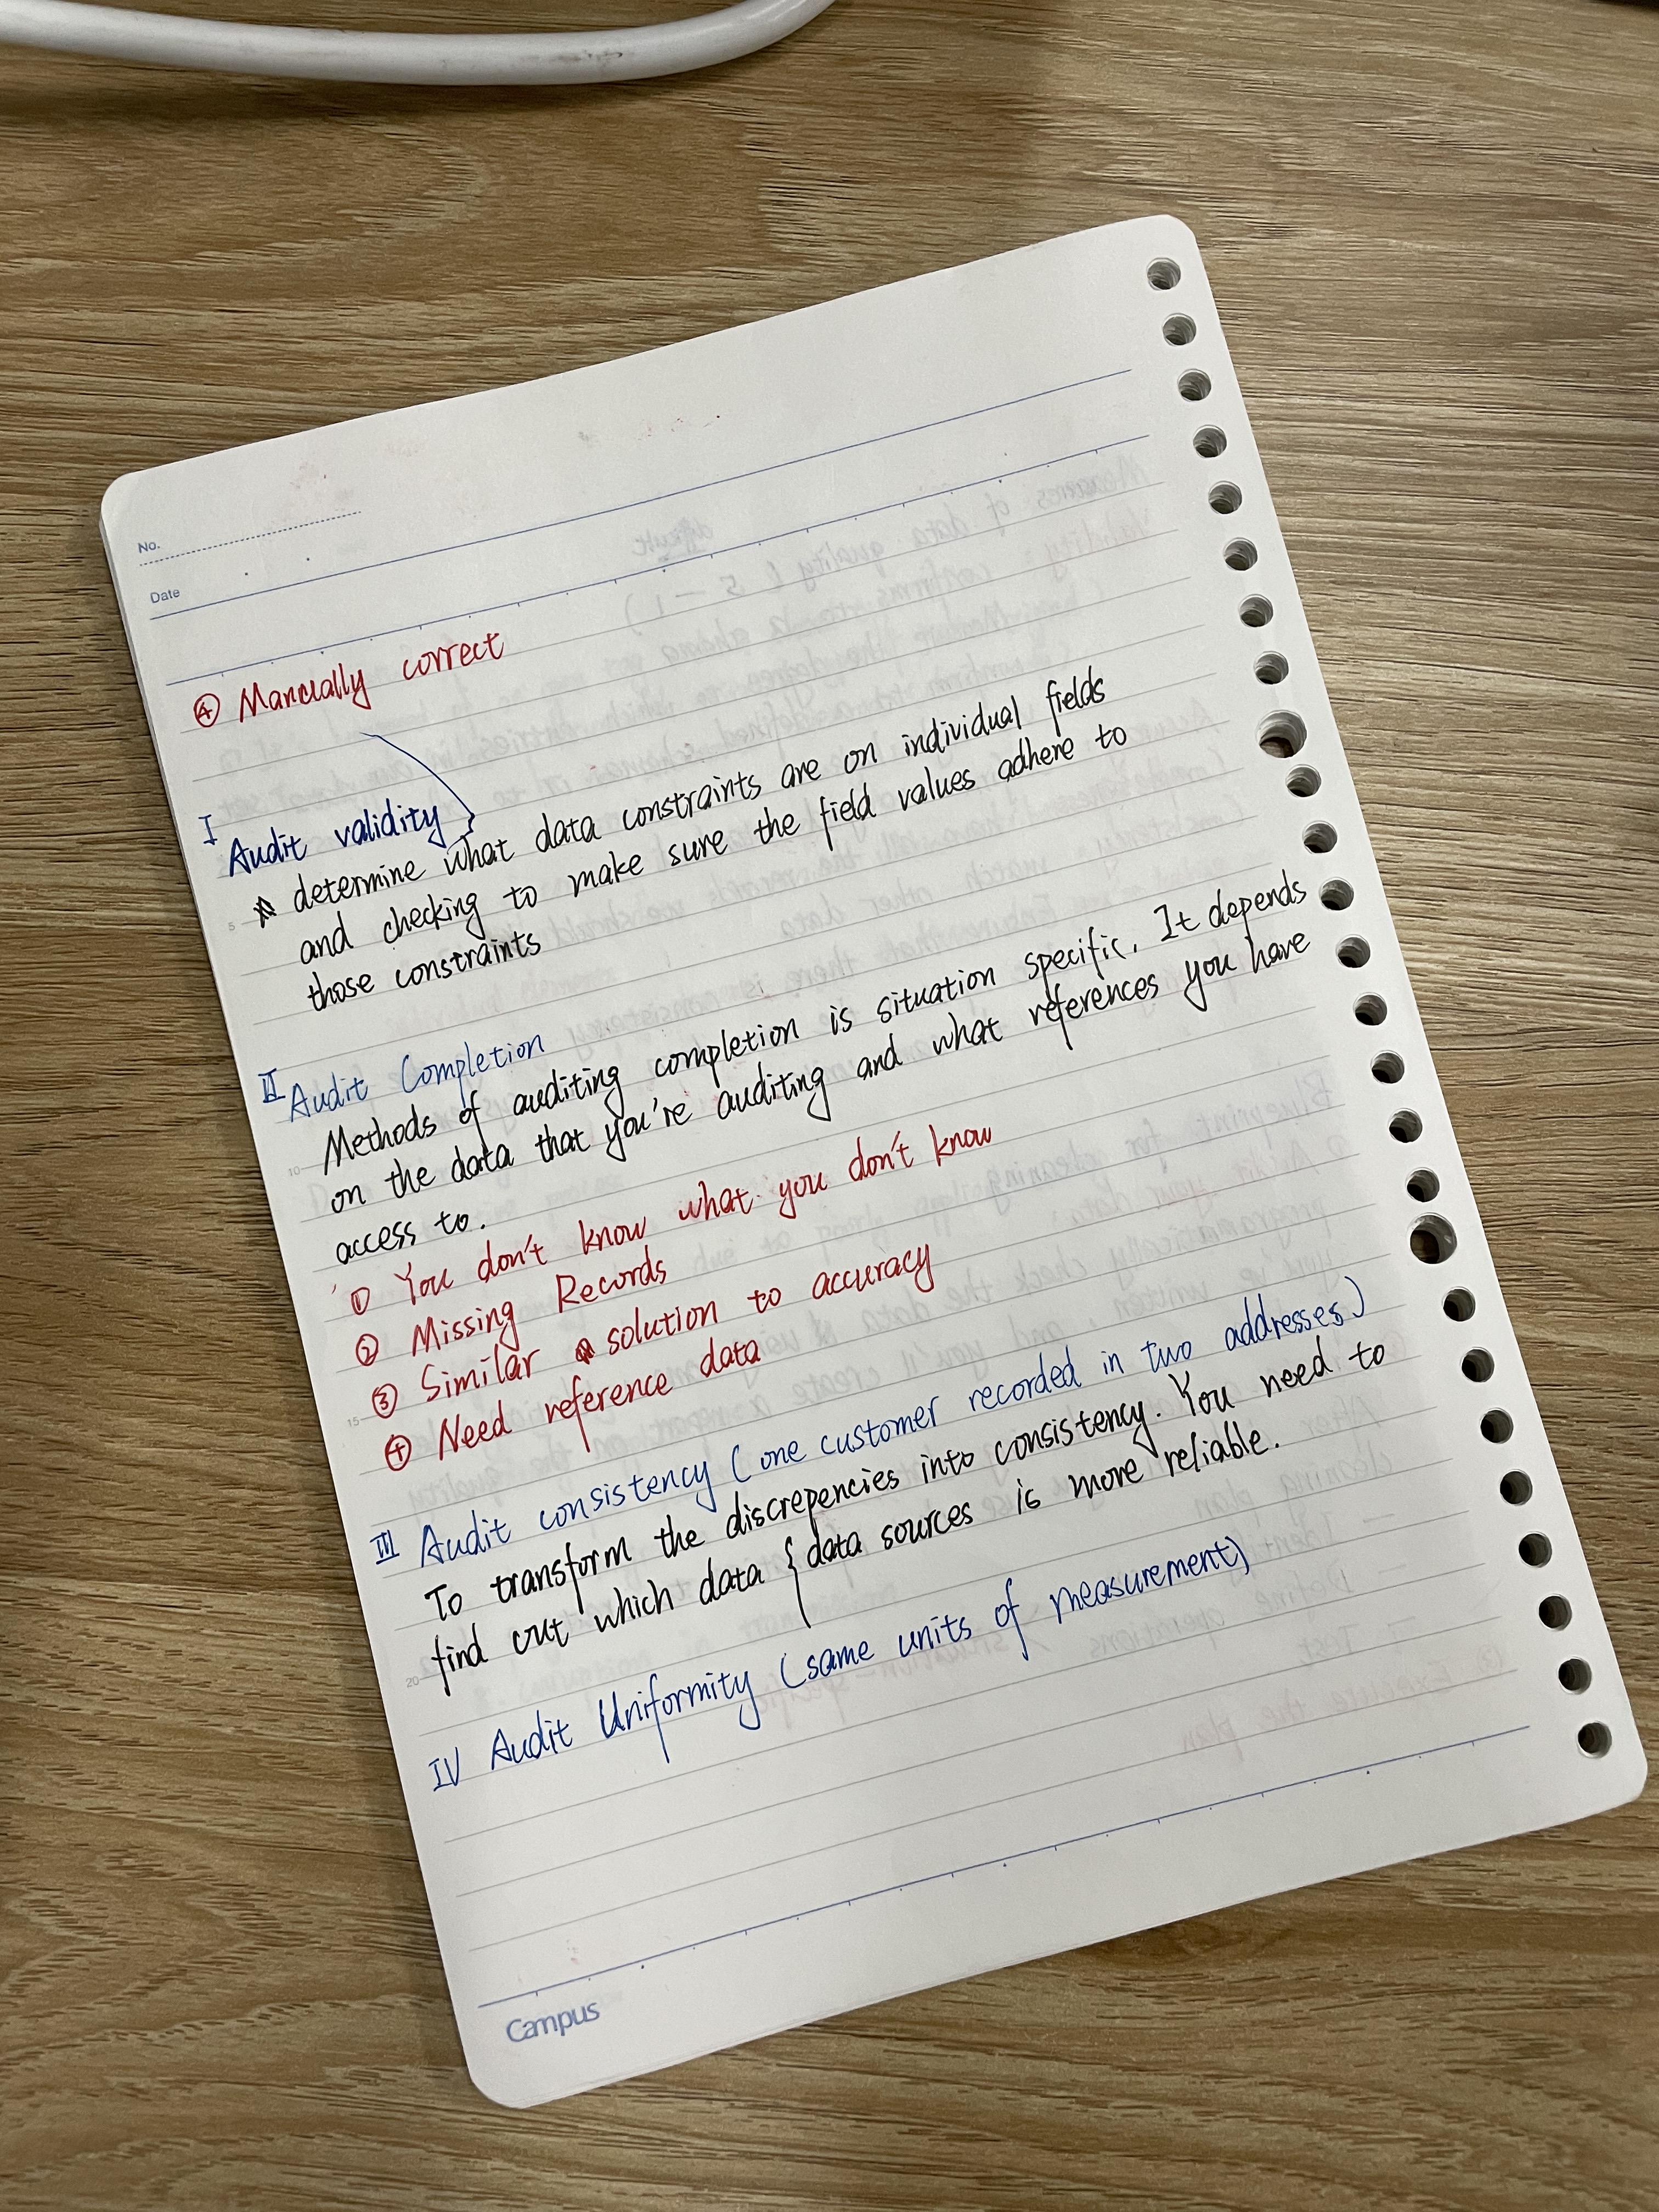 No.
Date
④ Manually correct
I Audit validity
determine what data constraints are on individual fields
and checking to make sure the field values adhere to
those constraints
II Audit Completion
Methods of auditing completion is situation specific. It depends
on the data that you're auditing and what references you have
access to.
① You don't know what you don't know
② Missing Records
③ Similar solution to accuracy
④ Need reference data
III Audit consistency (one customer recorded in two addresses)
To transform the discrepencies into consistency. You need to
find out which data { data sources is more reliable.
IV Audit Uniformity (same units of measurement)
5
10
15
20
Campus